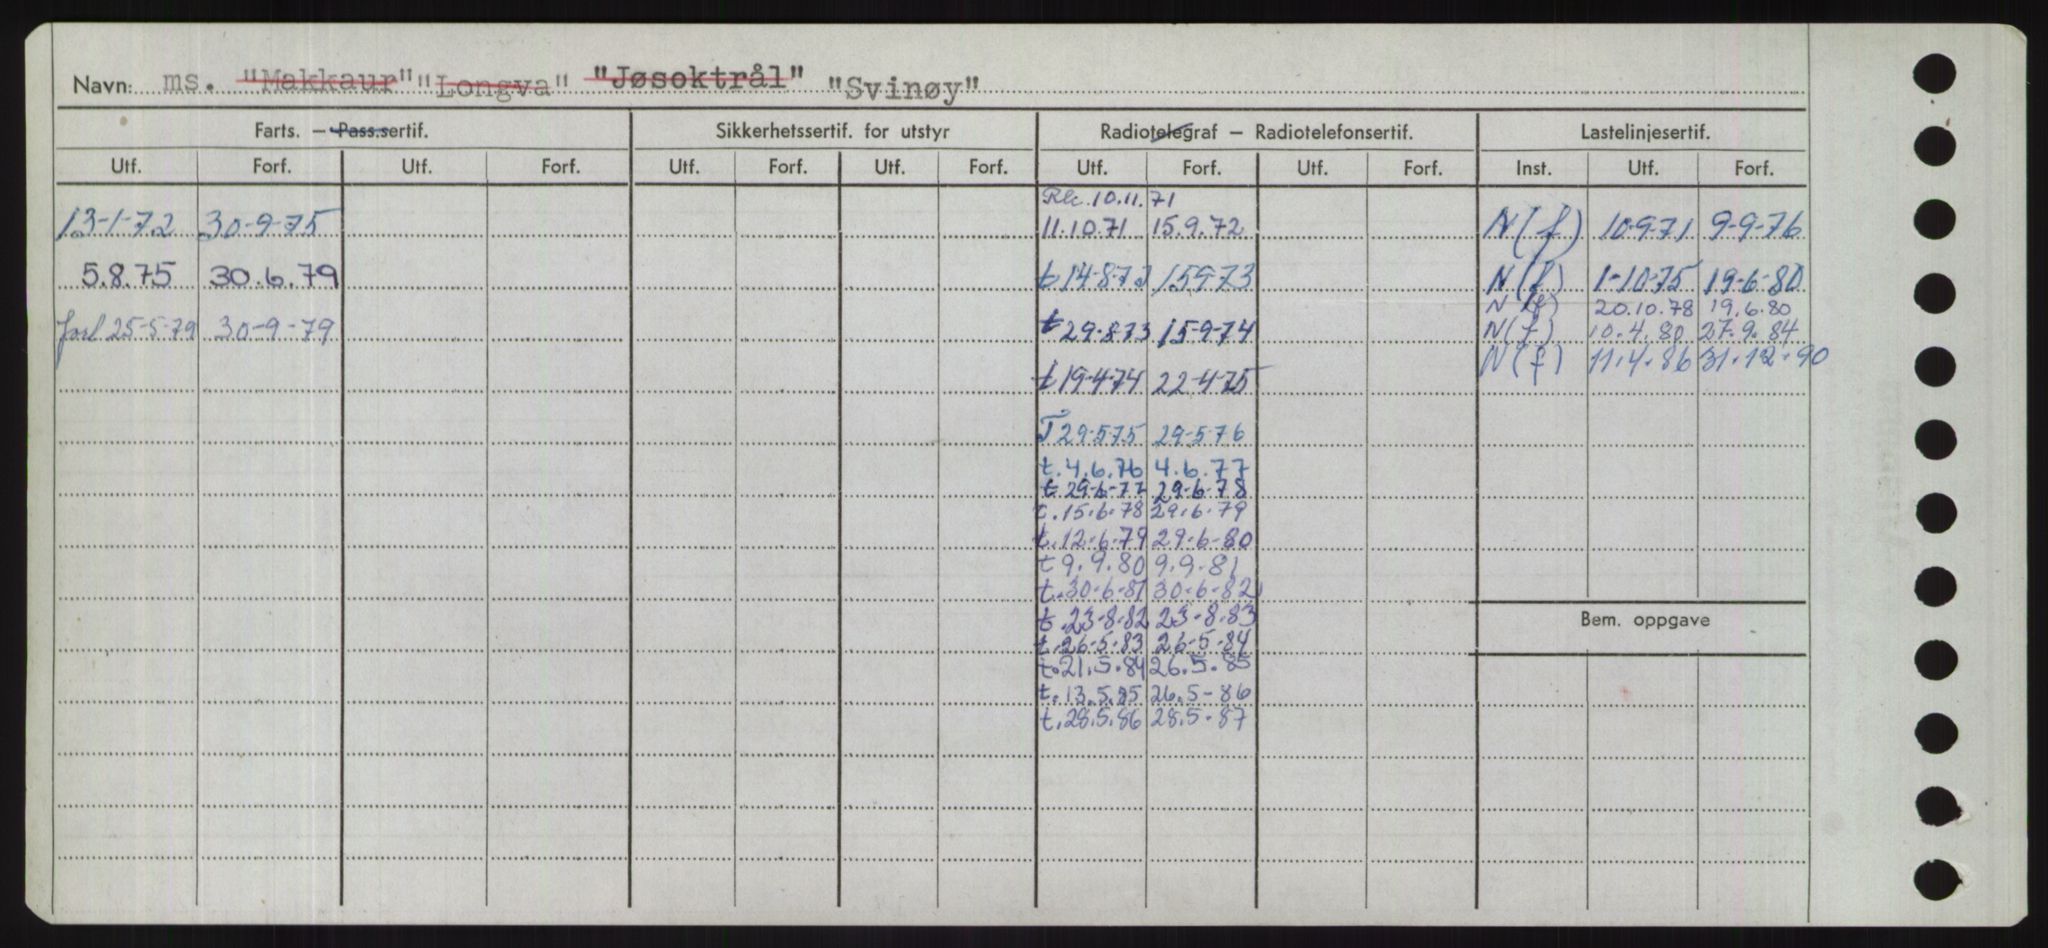 Navn: ms. "Makkaur" "Longva" "Jøsoktrål" "Svinøy"
Farts. – Pass.sertif. Sikkerhetssertif. for utstyr Radiotelegraf – Radiotelefonsertif. Lastelinjesertif.
Utf. Forf. Utf. Forf. Utf. Forf. Utf. Forf. Utf. Forf. Utf. Forf. Inst. Utf. Forf.
10.11.71
13-1-72 30-9-75 11.10.71 15.9.72 N(f) 10-9-71 9-9-76
5.8.75 30.6.79 t 14-8-72 15973 N(f) 1-10-75 19-6-80
N(f) 20.10.78 19.6.80
forl 25-5-79 30-9-79 t 29-8-73 15-9-74 N(f) 10.4.80 27.9.84
N(f) 11.4.86 31.12.90
t 19-4-74 22-4-75
T 29-5-75 29-5-76
t. 4.6.76 4.6.77
t 29-6-77 29-6-78
t. 15.6.78 29.6.79
t. 12-6-79 29-6-80
t 9.9.80 9.9.81
t. 30-6-81 30-6-82
t. 23-8-82 23-8-83
Bem. oppgave
t. 26-5-83 26-5-84
t. 21.5.84 26.5.85
t. 13.5.85 26.5-86
t. 28.5.86 28.5-87